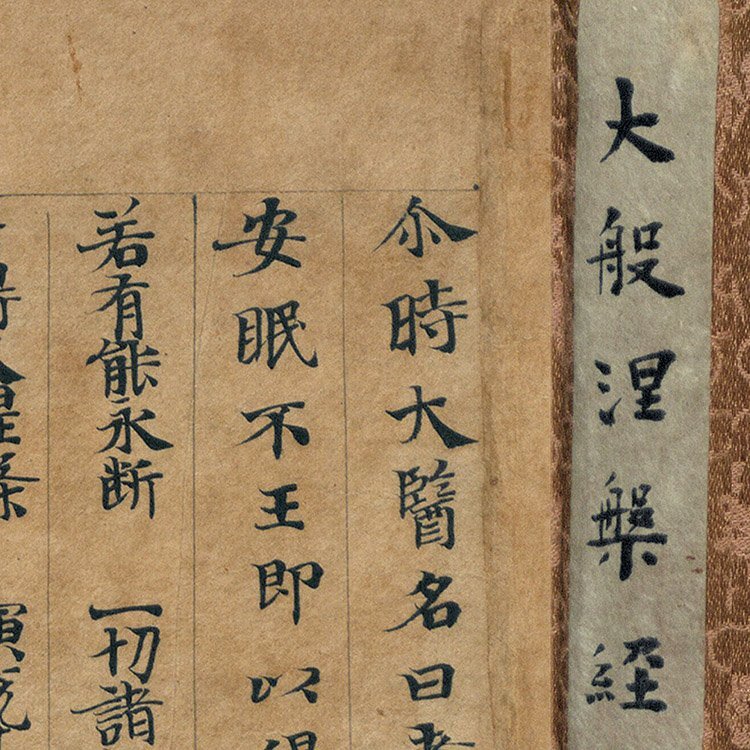 大般涅槃経
尒時大醫名曰耆
安眠不王即以偈
若有能永断 一切諸
得大涅槃 演